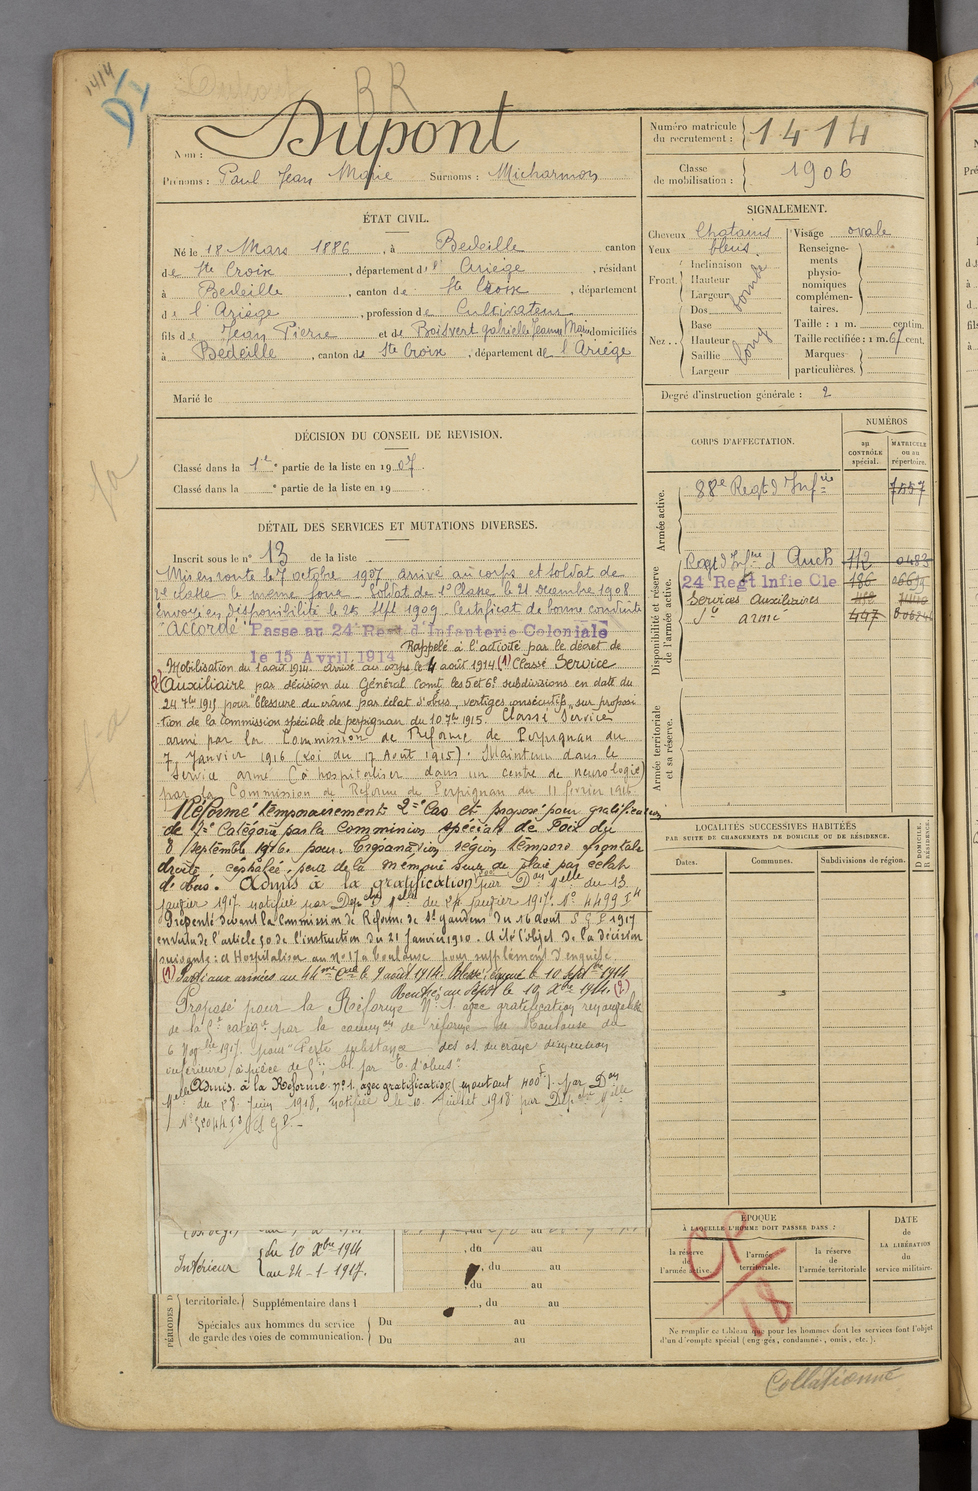 1414
RR
Nom : Dupont
Prénoms : Paul Jean Marie Surnoms : Micharmon
Numéro matricule du recrutement : 1414
Classe de mobilisation : 1906
ÉTAT CIVIL.
Né le 18 Mars 1886, à Bedeille canton
de Ste Croix, département de l'Ariège, résidant
à Bedeille, canton de Ste Croix, département
de l'Ariège, profession de Cultivateur
fils de Jean Pierre et de Boisvert Gabrielle Jeanne Marie domiciliés
à Bédeille, canton de Ste Croix, département de l'Ariège
Marié le
SIGNALEMENT.
Cheveux Chatains
Yeux bleus
Front. Inclinaison Hauteur Largeur
Nez .. Dos Base Hauteur Saillie Largeur
long
Visage ovale
Renseignements physionomiques complémentaires.
Taille : 1 m. centim.
Taille rectifiée : 1 m. 67 cent.
Marques particulières.
Degré d'instruction générale : 2
DÉCISION DU CONSEIL DE REVISION.
Classé dans la 1e partie de la liste en 1907.
Classé dans la e partie de la liste en 19
CORPS D'AFFECTATION.
NUMÉROS
au CONTRÔLE spécial.
MATRICULE ou au répertoire.
Armée active.
88e Regt d'Infie 7557
Disponibilité et réserve de l'armée active.
Regt d'Infie d'Auch 112 0483
24 Regt Infie Cle 186
Services Auxiliaires
Sce armé 497
Armée territoriale et sa réserve.
DÉTAIL DES SERVICES ET MUTATIONS DIVERSES.
Inscrit sous le n° 13 de la liste
Mis en route le 7 octobre 1907, arrivé au corps et soldat de
2e classe le même jour. Soldat de 1e Classe le 21 Decembre 1908
Envoyé en disponibilité le 25 Sept 1909. Certificat de bonne conduite
"Accordé" Passé au 24 Regt d'Infanterie Coloniale
le 15 Avril 1914 Rappelé à l'activité par le décret de
Mobilisation du 1 août 1914. Arrivé au corps le 4 août 1914 (1) Classé Service
(2) Auxiliaire par décision du Général Comt les 5 et 6e subdivisions en date du
24 7bre 1915 pour "blessure du crâne par éclat d'obus, vertiges consécutifs" sur proposi
tion de la Commission spéciale de perpignan du 10 7bre 1915. Classé Service
armé par la Commission de Réforme de Perpignan du
7 Janvier 1916 (Loi du 17 Août 1915). Maintenu dans le
Service armé (à hospitaliser dans un centre de neurologie)
par la Commission de Reforme de Perpignan du 11 février 1916
Réformé temporairement 2e Cas et proposé pour gratification
de Catégorie par la Commission spéciale de Foix du
8 Septembre 1916. pour. Trépanation région temporo frontale
droite, céphalée, perte de la mémoire suite de plaie par éclats
d'obus. Admis à la gratification par Don Melle du 13
janvier 1917 notifiée par Depche Melle du 24 janvier 1917. N° 4499
Présenté devant la Commission de Réforme de St Gaudens du 16 août 1917
en vertu de l'article 50 de l'instruction du 21 Janvier 1910. A été l'objet de la décision
suivante : à Hospitaliser au N° 17 à Toulouse pour supplément d'enquête.
(1) Parti aux armées au 44me Cial le 9 août 1914. Blessé évacué le 10 Septbre 1914
Rentré au dépôt le 10 Xbre 1914. (2)
Proposé pour la Réforme N° 1 avec gratification renouvelable
de la catégie par la common de réforme de Toulouse du
6 Novbre 1917. pour "Perte substance des os du crane dimension
inférieure à pièce de 5f; bl. par E. d'obus."
Admis à la Réforme n° 1 avec gratification (montant 400f) par Don
Melle du 28 Juin 1918, notifiée le 10 Juillet 1918 par Depche Melle
LOCALITÉS SUCCESSIVES HABITÉES
PAR SUITE DE CHANGEMENTS DE DOMICILE OU DE RÉSIDENCE.
Dates. Communes. Subdivisions de région. D DOMICILE. R RÉSIDENCE.
ÉPOQUE
À LAQUELLE L'HOMME DOIT PASSER DANS :
la réserve de l'armée active.
l'armée territoriale.
la réserve de l'armée territoriale
DATE DE LA LIBÉRATION du service militaire.
CP
18
Intérieur du 10 Xbre 1914
au 24-1-1917.
, du au
, du au
, du au
territoriale. Supplémentaire dans l , du au
Spéciales aux hommes du service de garde des voies de communication. Du au
Du au
PÉRIODES D
Ne remplir ce tableau que pour les hommes dont les services font l'objet
d'un décompte spécial (engagés, condamnés, omis, etc.).
Collationné